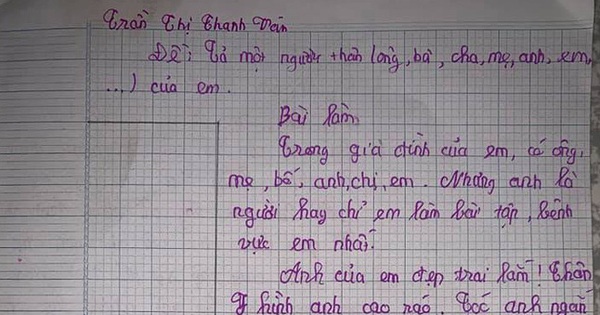 Trần Thị Thanh Vân
Đề: Tả một người thân (ông, bà, cha, mẹ, anh, em,
...) của em.
Bài làm
Trong gia đình của em, có ông,
mẹ, bố, anh, chị, em. Nhưng anh là
người hay chỉ em làm bài tập, bênh
vực em nhất.
Anh của em đẹp trai lắm! Thân
hình anh cao ráo. Tóc anh ngắn